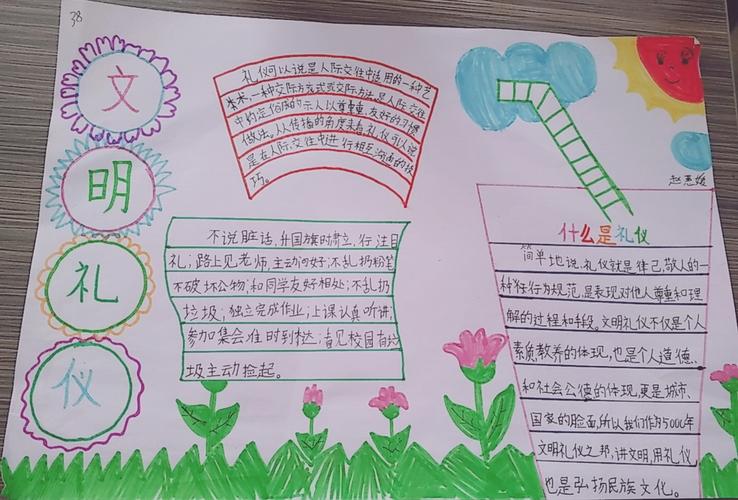 38
文
明
礼
仪
礼仪可以说是人际交往中适用的一种艺
术,一种交际方式或交际方法,是人际交往
中约定俗成的示人以尊重、友好的习惯
做法。从传播的角度来看,礼仪可以说
是在人际交往中进行相互沟通的技
巧。
不说脏话,升国旗时肃立,行注目
礼;路上见老师,主动问好;不乱扔粉笔
不破坏公物;和同学友好相处;不乱扔
垃圾;独立完成作业;上课认真听讲;
参加集会准时到达;看见校园有垃
圾主动捡起。
赵惠媛
什么是礼仪
简单地说,礼仪就是律己、敬人的一
种行为规范,是表现对他人尊重和理
解的过程和手段。文明礼仪不仅是个人
素质、教养的体现,也是个人道德、
和社会公德的体现,更是城市、
国家的脸面,所以我们作为5000年
文明礼仪之邦,讲文明,用礼仪,
也是弘扬民族文化。